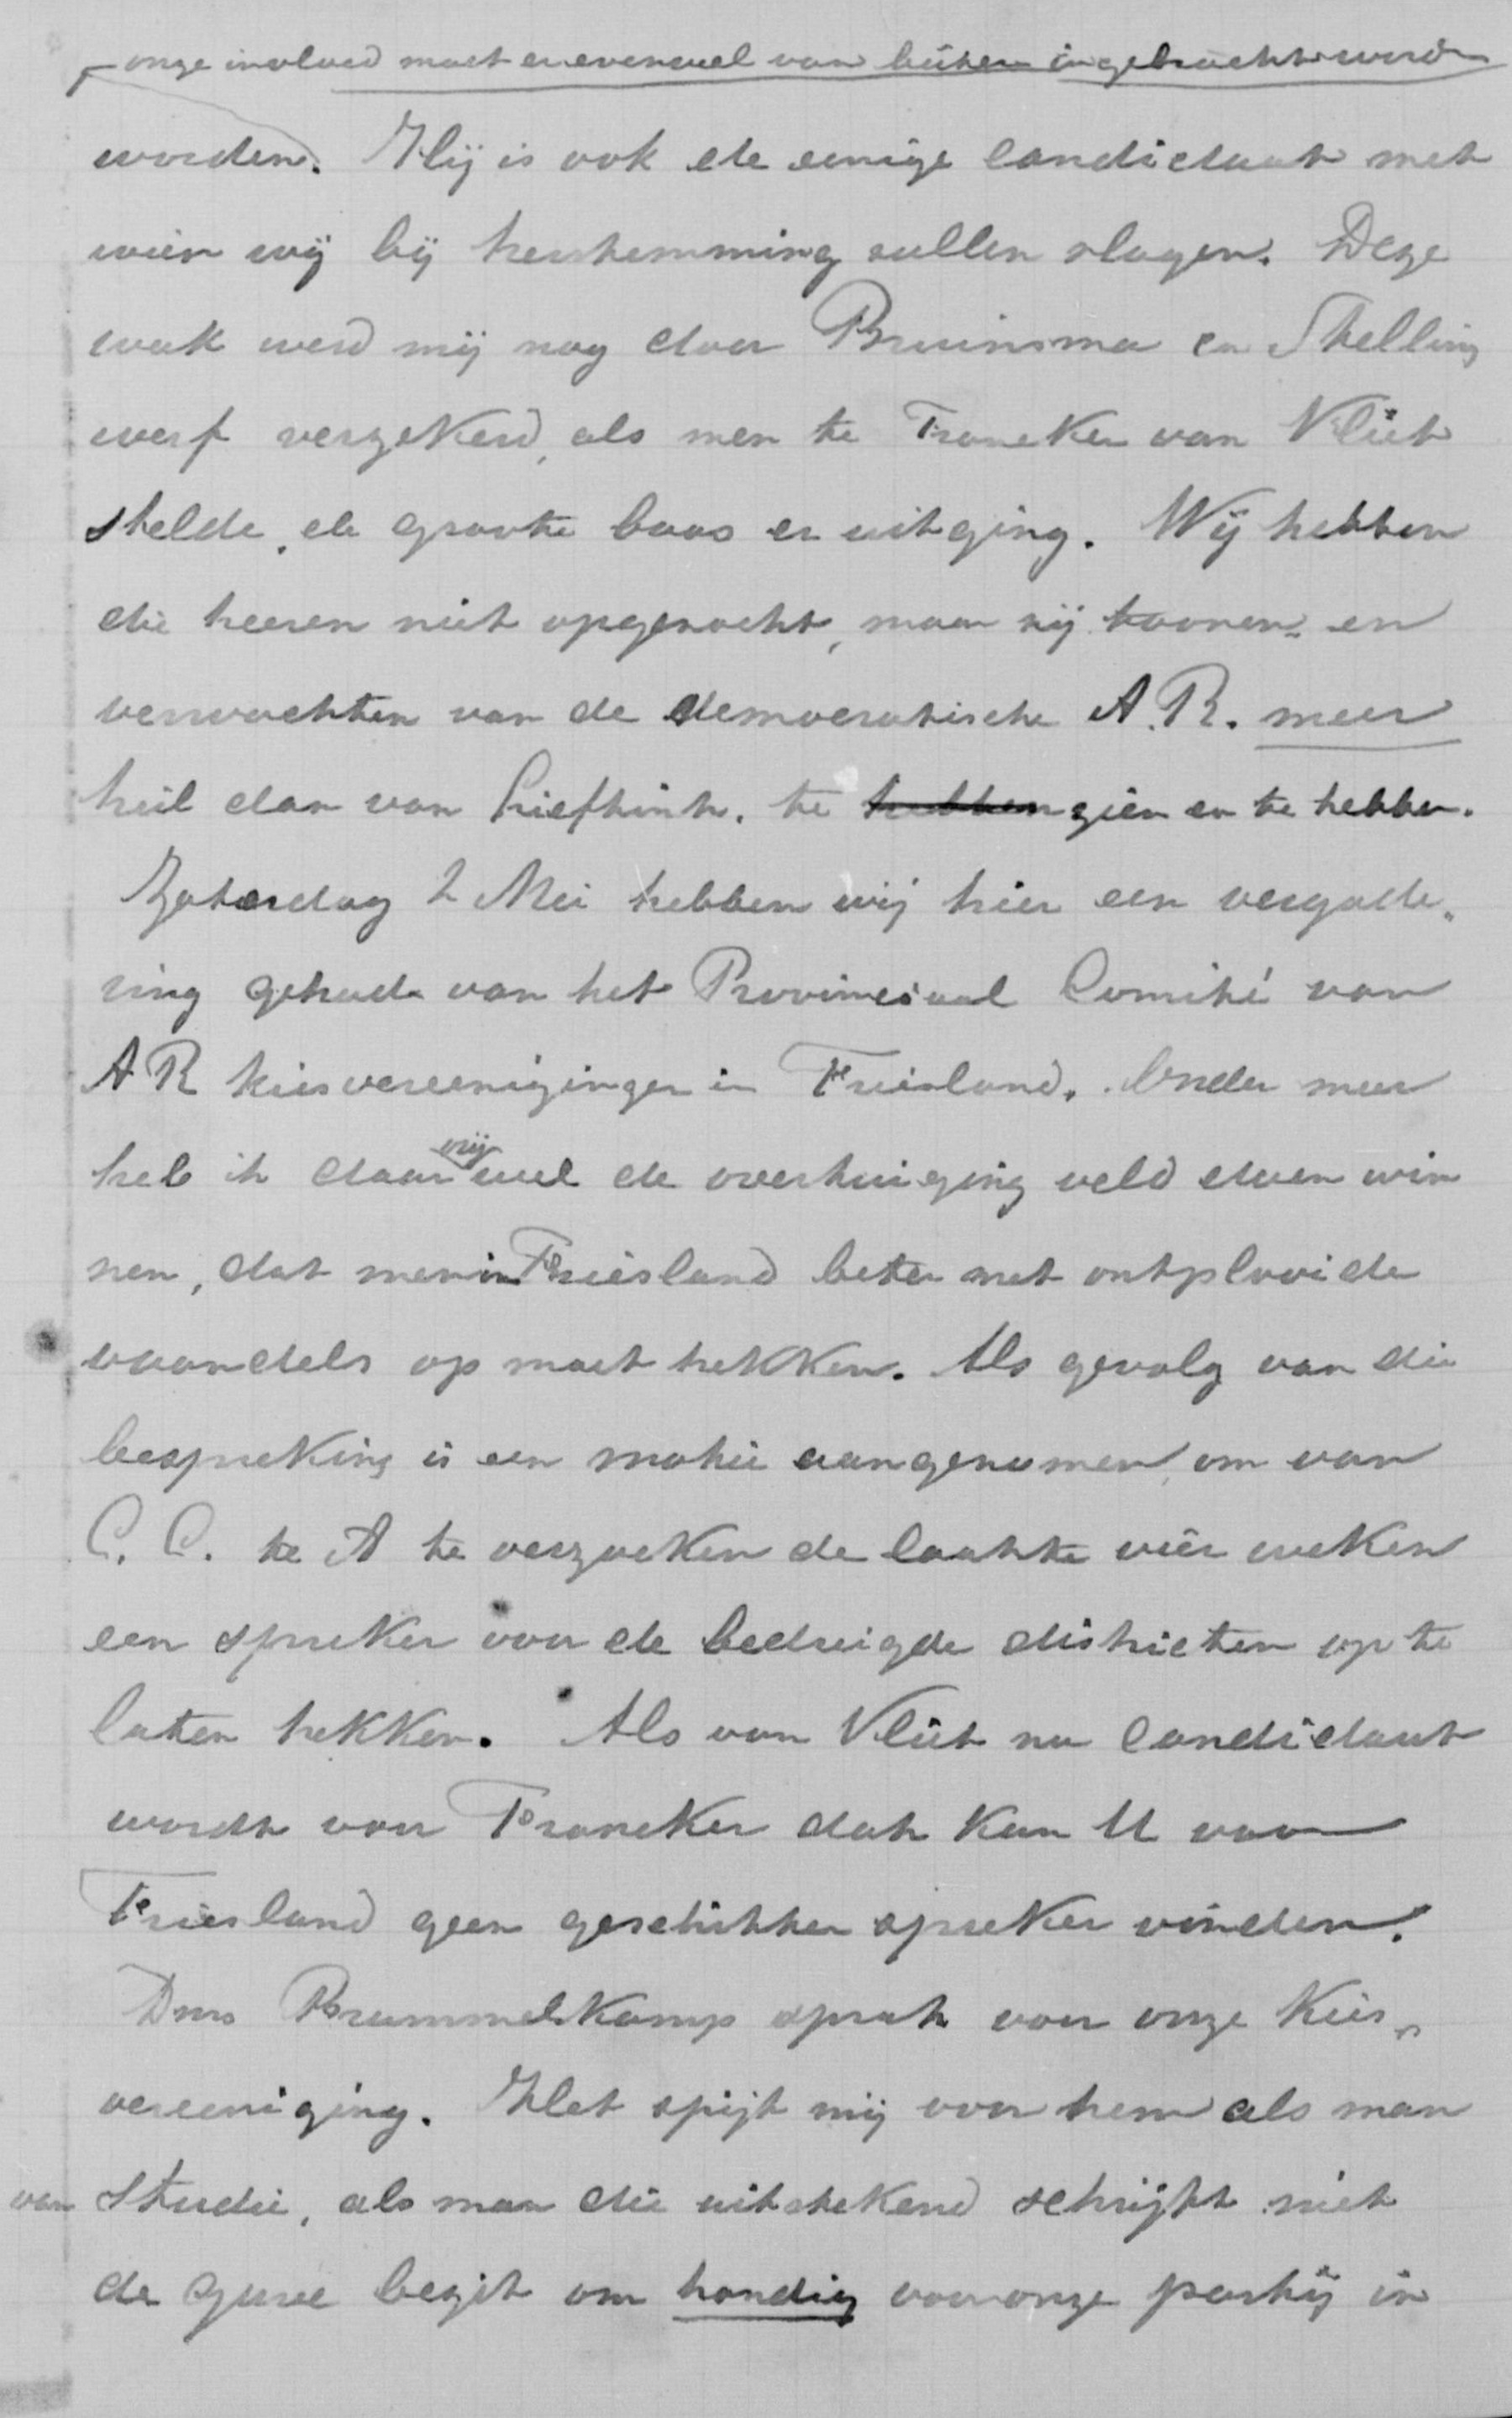 onze invloed moet er evenwel van buiten ingebracht worden
worden. Hij is ook de eenige candidaat met
wien wij bij herstemming zullen slagen. Deze
week werd mij nog door Bruinsma en Stelling
werf verzekerd, als men te Franeker van Vliet
stelde, de groote baas er uitging. Wij hebben
die heeren niet opgezocht, maar zij toonen en
verwachten van de democratische A.R. meer
heil dan van Liefkinck. te hebben zien en te hebben.
Zaterdag 2 Mei hebben wij hier een vergade„
ring gehad van het Provinciaal Comité van
AR kiesvereenigingen in Friesland. Onder meer
heb ik daar vrij wel de overtuiging veld doen win
nen, dat men in Friesland beter met ontplooide
vaandels op moet trekken. Als gevolg van die
bespreking is een motie aangenomen om van
C. C. te A te verzoeken de laatste vier weken
een spreker voor de bedreigde districten op te
laten trekken. Als van Vliet nu candidaat
wordt voor Franeker dat kan U voor
Friesland geen geschikter spreker vinden.
Dms Brummelkamp sprak voor onze Kies„
vereeniging. Het spijt mij voor hem als man
van studie, als man die uitstekend schrijft niet
de gave bezit om handig voor onze partij in